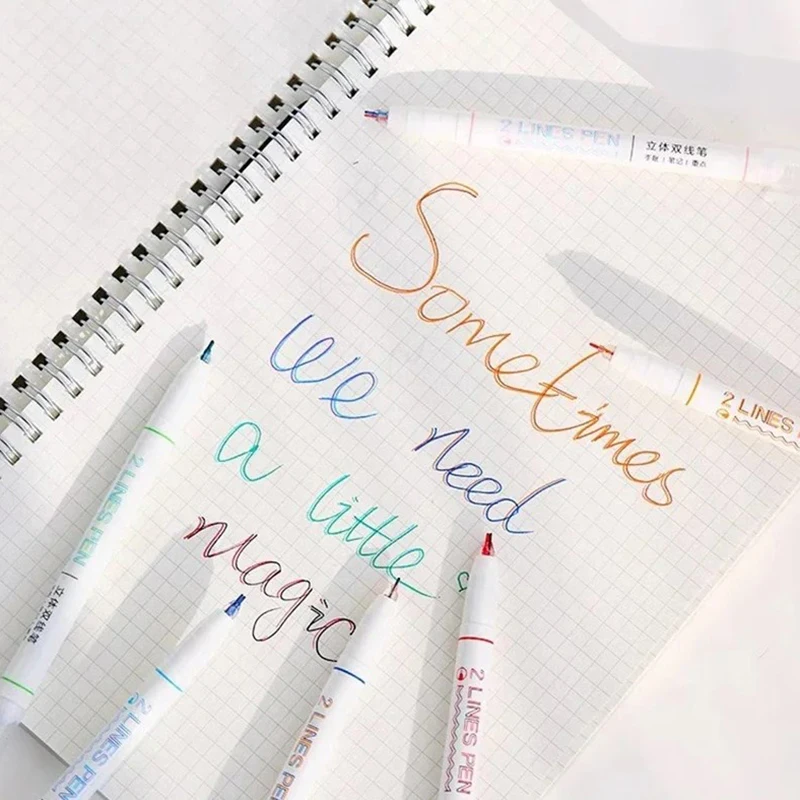 2 LINES PEN
立体双线笔
手账 | 笔记 | 重点
Sometimes
we need
a little
magic
2 LINES
2 LINES PEN
立体双线笔
2 LINES PEN
2 LINES PEN
2 LINES PEN